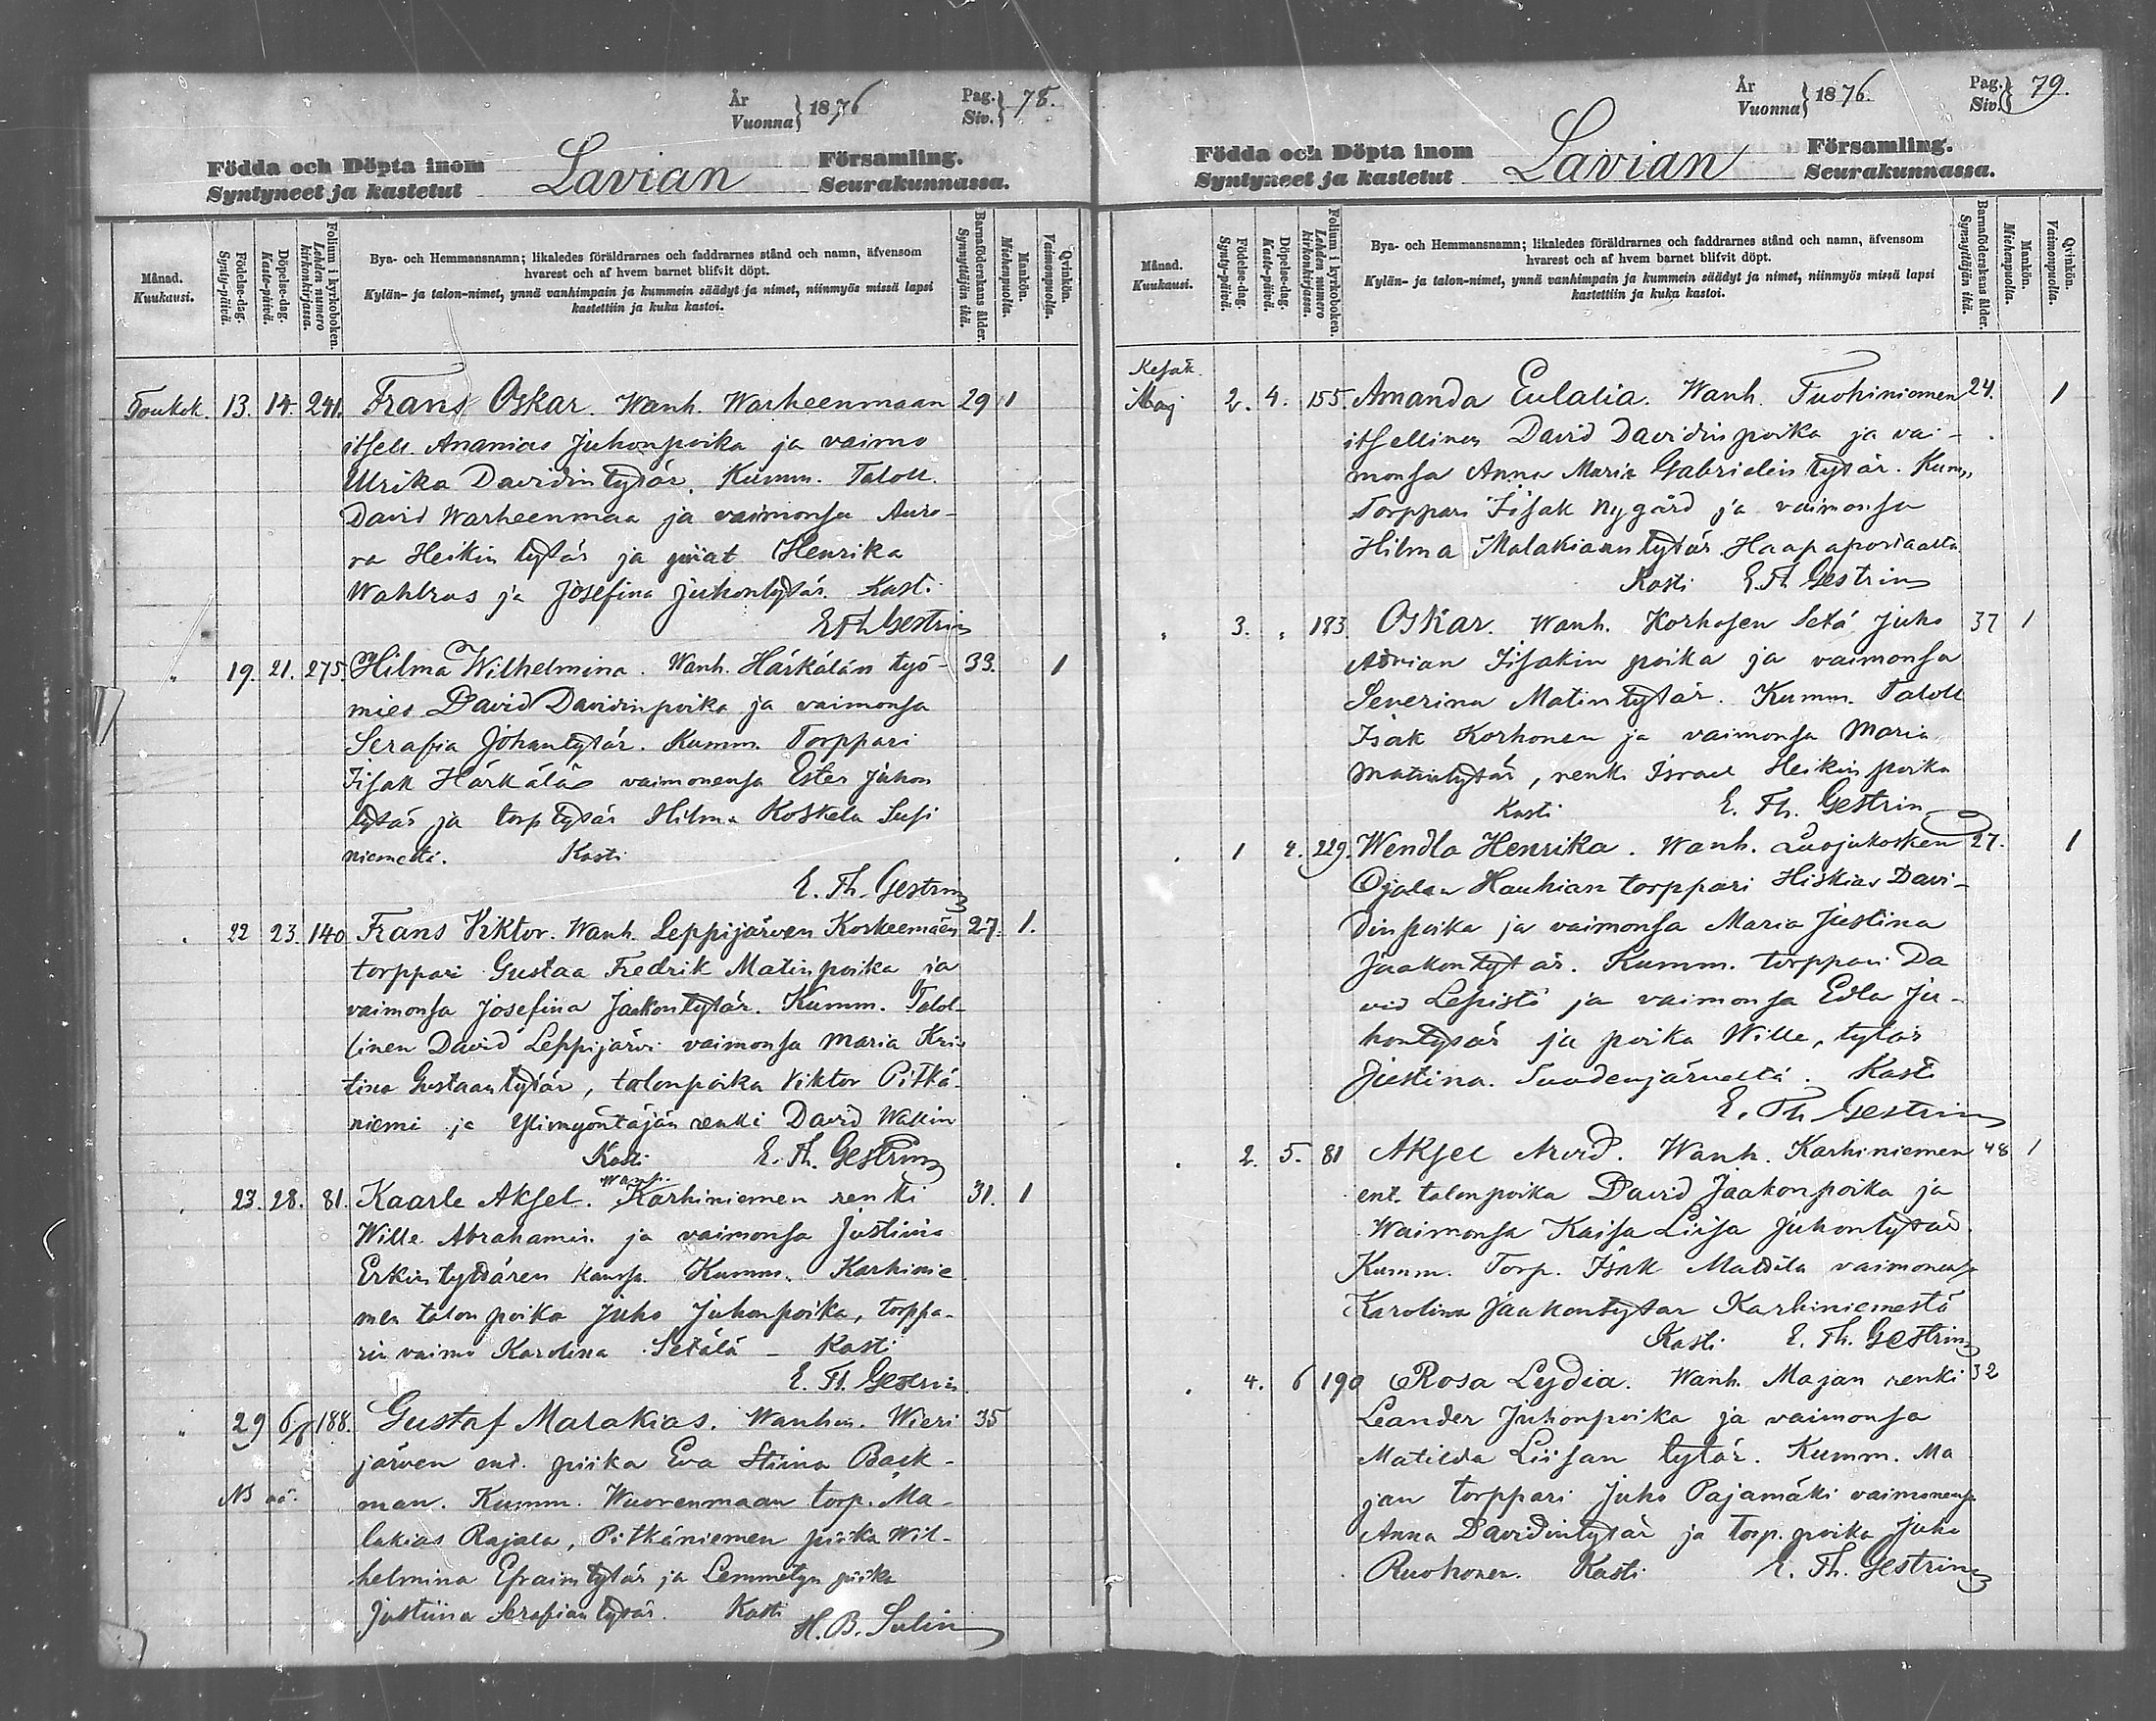 År Vuonna } 1876 Pag. Siv. } 78.
Födda och Döpta inom Lavian Församling.
Syntyneet ja kastetut Seurakunnassa.
Månad. Kuukausi.
Födelse-dag. Synty-päivä.
Döpelse-dag. Kaste-päivä.
Folium i kyrkoboken. Lehden numero kirkonkirjassa.
Bya- och Hemmansnamn; likaledes föräldrarnes och faddrarnes stånd och namn, äfvensom
hvarest och af hvem barnet blifvit döpt.
Kylän- ja talon-nimet, ynnä vanhimpain ja kummein säädyt ja nimet, niinmyös missä lapsi
kastettiin ja kuka kastoi.
Barnaföderskans ålder. Synnyttäjän ikä.
Mankön. Miehenpuolia.
Qvinkön. Vaimonpuolia.
Toukok. 13. 14. 241. Frans Oskar. Wanh. Warheenmaan 29 1
itsell. Ananias Juhonpoika ja vaimo
Ulrika Davidintytär. Kumm. Taloll.
David Warheenmaa ja vaimonsa Auro-
ra Heikin tytär ja piiat Henrika
Wahlros ja Josefina Juhontytär. Kasti
E Th Gestrin
" 19. 21. 275. Hilma Wilhelmina. Wanh. Härkälän työ- 33. 1
mies David Davidinpoika ja vaimonsa
Serafia Johantytär. Kumm. Torppari
Iisak Härkälä vaimonensa Ester Juhon
tytär ja torp tytär Hilma Koskela Susi
niemestä. Kasti
E. Th. Gestrin
" 22 23. 140 Frans Viktor. Wanh. Leppijärven Korkeemäen 27. 1.
torppari Gustaa Fredrik Matinpoika ja
vaimonsa Josefina Jaakontytär. Kumm. Talol-
linen David Leppijärvi vaimonsa Maria Kris
tina Gustaantytär, talonpoika Viktor Pitkä-
niemi ja Ylimyöntäjän renki David Wallin
Kasti E. Th. Gestrin
" 23. 28. 81. Kaarle Aksel. Wanh. Karhiniemen renki 31. 1
Wille Abrahamin ja vaimonsa Justiina
Erkintyttären kanssa. Kumm. Karhinie
men talon poika Juho Juhonpoika, torppa-
rin vaimo Karolina Setälä - Kasti
E. Th. Gestrin
" 29 6/6 188. Gustaf Malakias. Wanhin. Wieri 35
järven ent. piika Eva Stiina Back-
NB aö. man. Kumm. Wuorenmaan torp. Ma-
lakias Rajala, Pitkäniemen piika Wil-
helmina Efraimtytär ja Lemmetyn piika
Justiina Serafiantytär. Kasti
H. B. Sulin
År Vuonna } 1876. Pag. Siv. } 79.
Födda och Döpta inom Lavian Församling.
Syntyneet ja kastetut Seurakunnassa.
Månad. Kuukausi.
Födelse-dag. Synty-päivä.
Döpelse-dag. Kaste-päivä.
Folium i kyrkoboken. Lehden numero kirkonkirjassa.
Bya- och Hemmansnamn; likaledes föräldrarnes och faddrarnes stånd och namn, äfvensom
hvarest och af hvem barnet blifvit döpt.
Kylän- ja talon-nimet, ynnä vanhimpain ja kummein säädyt ja nimet, niinmyös missä lapsi
kastettiin ja kuka kastoi.
Barnaföderskans ålder. Synnyttäjän ikä.
Mankön. Miehenpuolia.
Qvinkön. Vaimonpuolia.
Kesäk.
Maj 2. 4. 155. Amanda Eulalia. Wanh. Tuohiniemen 24. 1
itsellinen David Davidinpoika ja vai-
monsa Anna Maria Gabrielin tytär. Kum.
Torppari Iisak Nygård ja vaimonsa
Hilma Malakiaan tytär Haapaporlaasta
Kasti E. Th Gestrin
" 3. " 183 Oskar. Wanh. Korhosen Setä Juho 37 1
Adrian Iisakin poika ja vaimonsa
Severina Matintytär. Kumm. Taloll
Isak Korhonen ja vaimonsa Maria
Matintytär, renki Israel Heikinpoika
Kasti E. Th. Gestrin
" 1 4. 229. Wendla Henrika. Wanh. Luojukosken 27. 1
Ojalan Hauhian torppari Hiskias Davi-
dinpoika ja vaimonsa Maria Justina
Jaakontytär. Kumm. torppari Da
vid Lepistö ja vaimonsa Edla Ju-
hontytär ja poika Wille, tytär
Justina. Suodenjärveltä. Kasti
E. Th Gestrin
" 2. 5. 81 Aksel Arvid. Wanh. Karhiniemen 48 1
ent. talonpoika David Jaakonpoika ja
Waimonsa Kaisa Liisa Juhontytär.
Kumm. Torp. Isak Mattila vaimonensa
Karolina Jaakontytär Karhiniemestä
Kasti E. Th. Gestrin
" 4. 6 190 Rosa Lydia. Wanh. Majan renki 32
Leander Juhonpoika ja vaimonsa
Matilda Liisan tytär. Kumm. Ma
jan torppari Juho Pajamäki vaimonensa
Anna Davidintytär ja torp. poika Juho
Ruohonen. Kasti E. Th. Gestrin